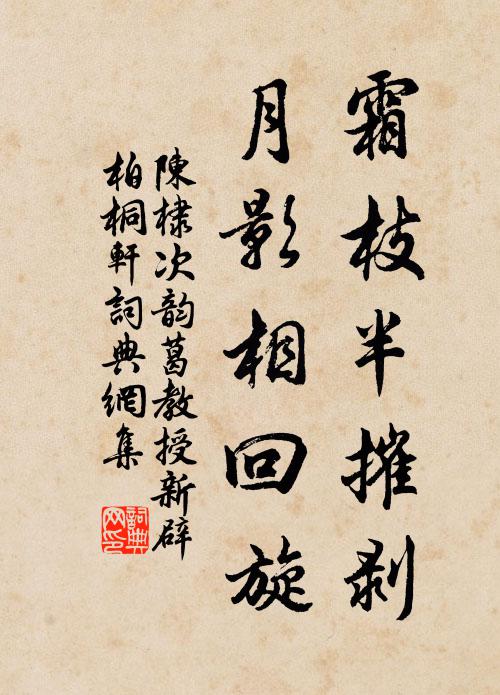 霜枝半摧剥
月影相回旋
陳棣次韵葛教授新辟
柏桐軒詞典網集
詞典网印